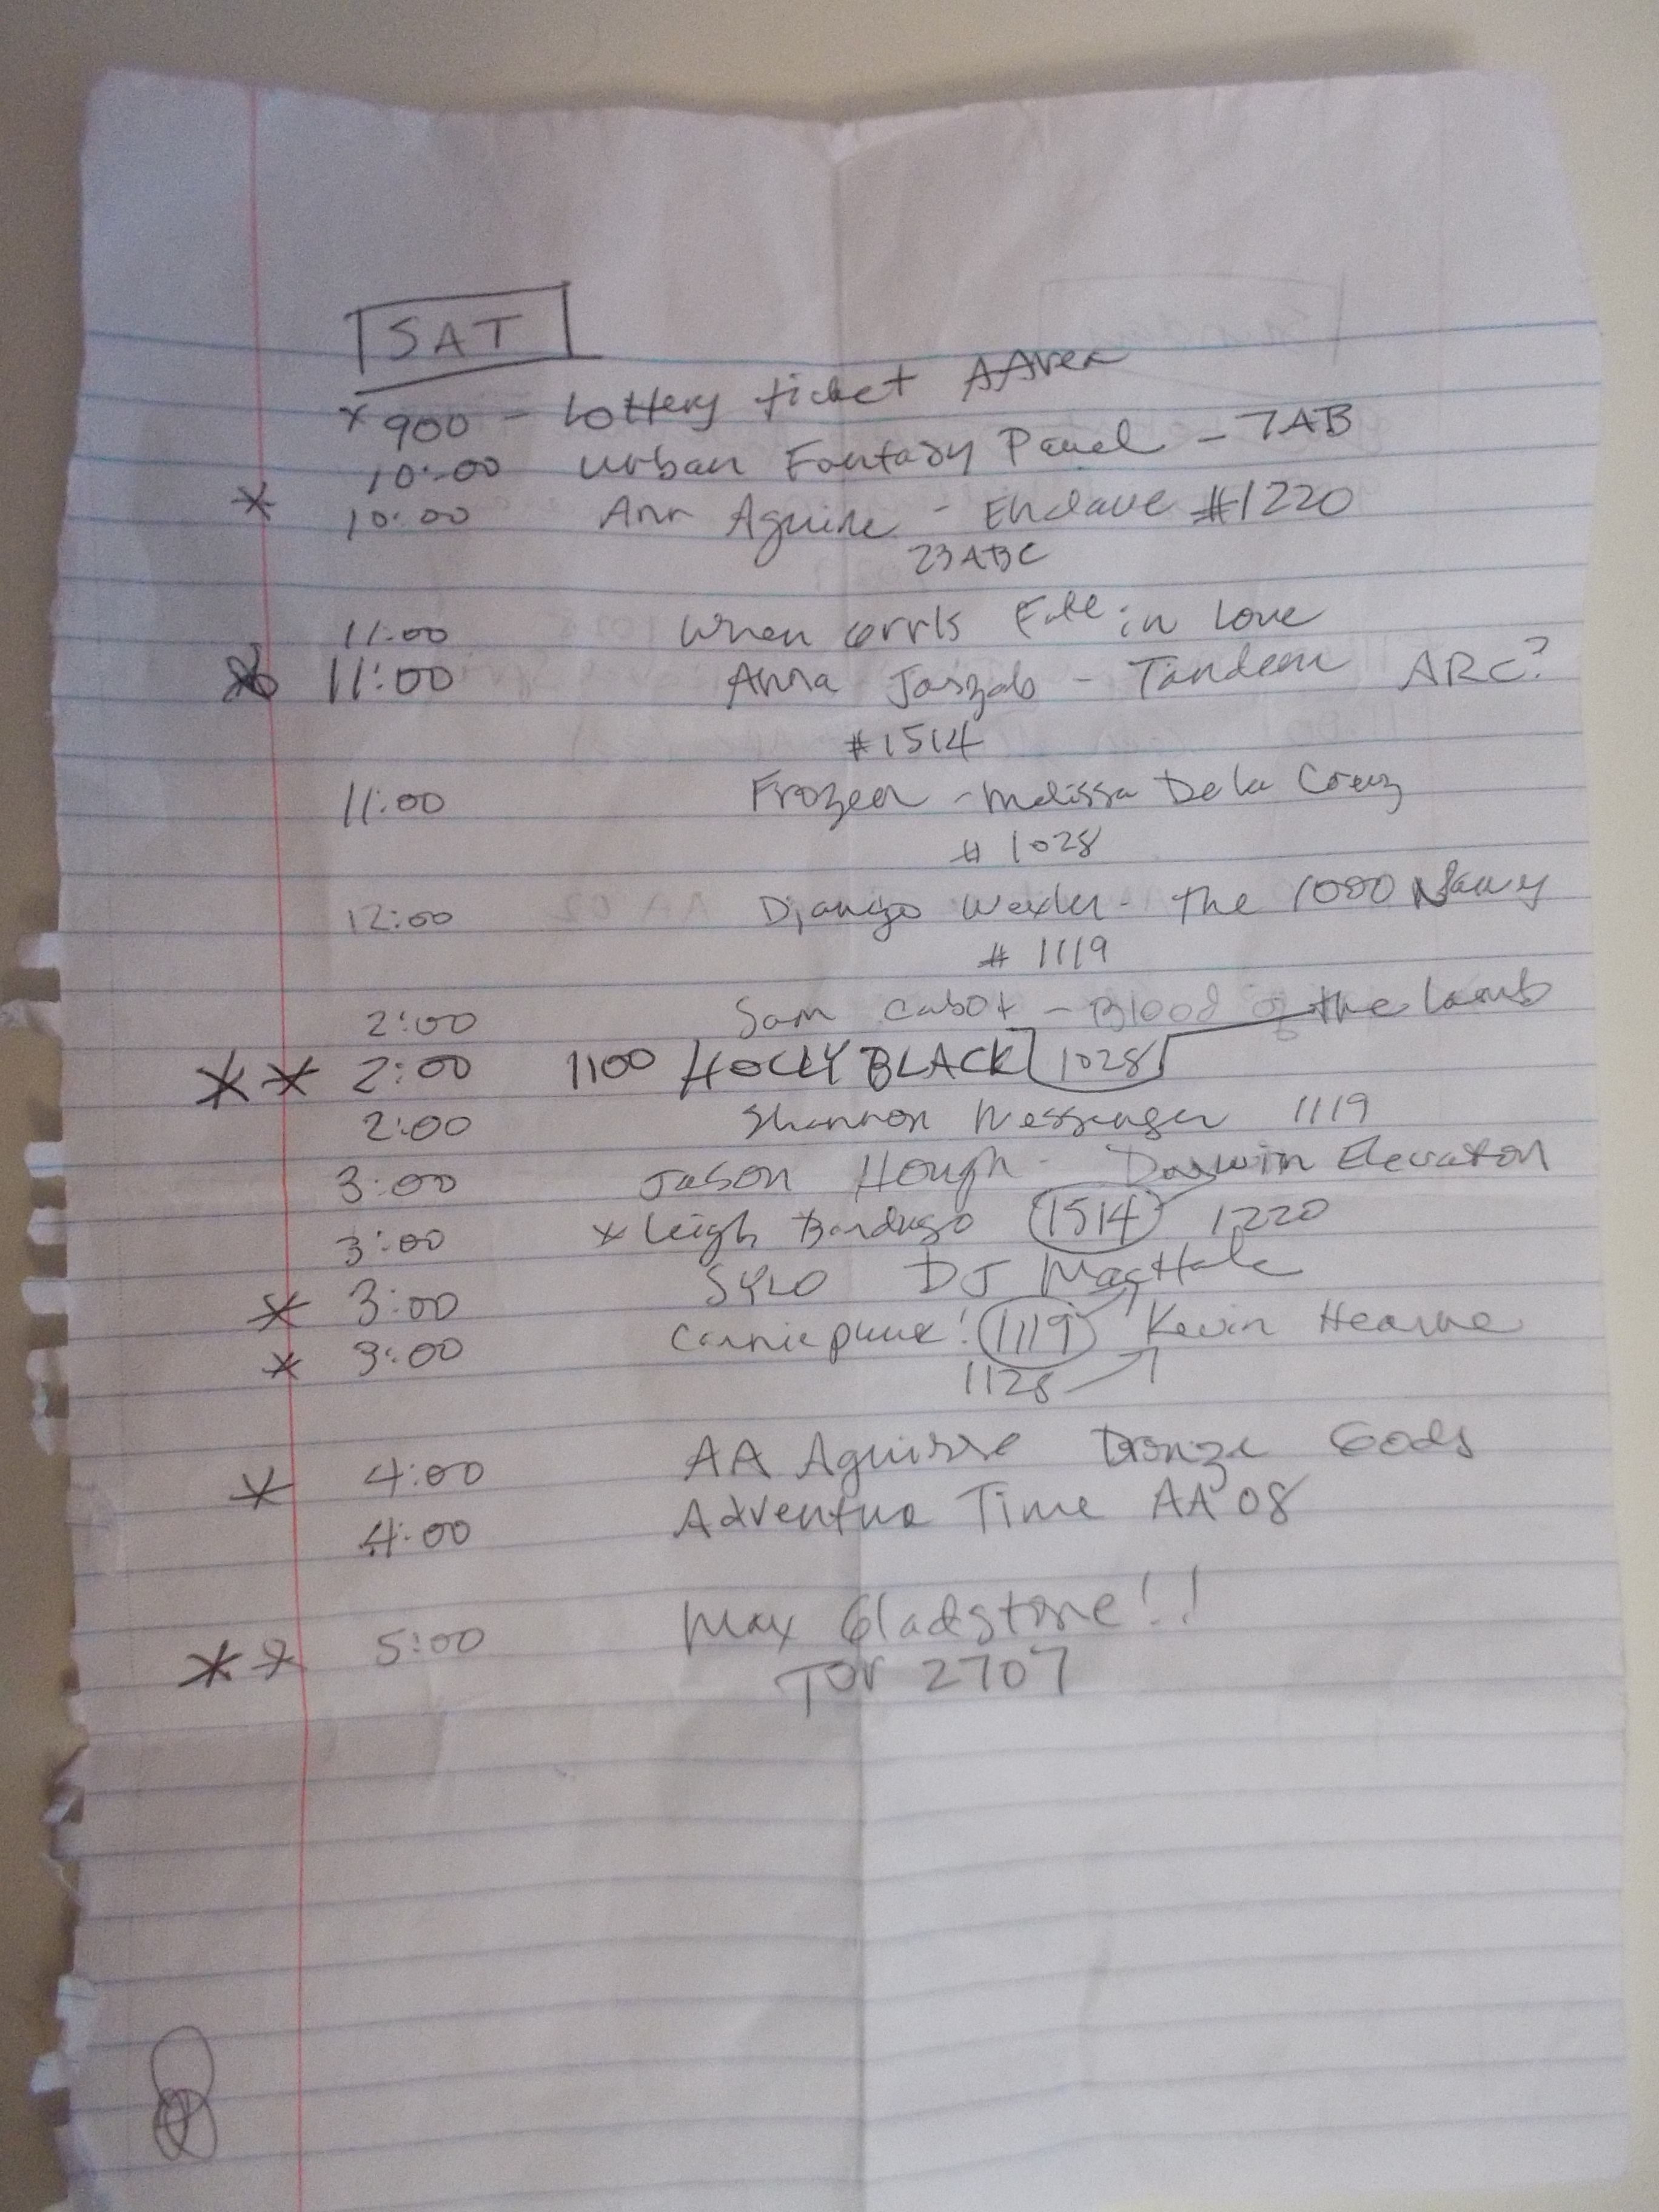 SAT
* 900 - Lottery ticket AArea
10:00 Urban Fantasy Panel - 7AB
* 10:00 Ann Aguirre - Enclave #1220
23ABC
11:00 When Girls Fall in Love
11:00 Anna Jarzab - Tandem ARC?
#1514
11:00 Frozen - Melissa De la Cruz
# 1028
12:00 Django Wexler - The 1000 Names
# 1119
2:00 Sam Cabot - Blood of the Lamb
** 2:00 1100 HOLLY BLACK 1028
2:00 Shannon Messenger 1119
3:00 Jason Hough - Darwin Elevator
3:00 * Leigh Bardugo 1514 1220
* 3:00 SYLO DJ MacHale
* 3:00 Carniepunk! 1119 Kevin Hearne
1128
* 4:00 AA Aguirre Bronze Gods
4:00 Adventure Time AA 08
** 5:00 Max Gladstone!!
TOR 2707